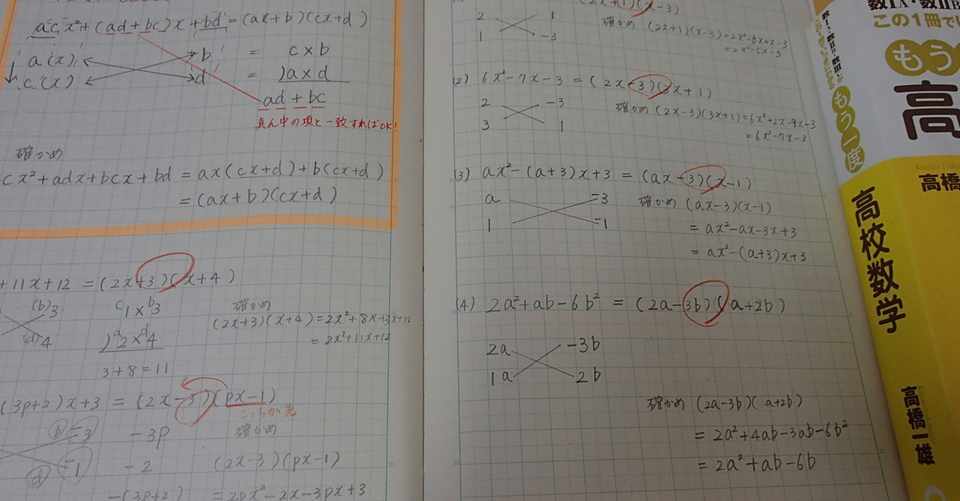 acx²+(ad+bc)x+bd=(ax+b)(cx+d)
a(x) b = c×b
c(x) d = )a×d
ad+bc
真ん中の項と一致すればOK!
確かめ
cx²+adx+bcx+bd=ax(cx+d)+b(cx+d)
=(ax+b)(cx+d)
+11x+12=(2x+3)(x+4)
(b)3 1×3
4 )2×4
3+8=11
確かめ
(2x+3)(x+4)=2x²+8x+3x+12
=2x²+11x+12
(3p+2)x+3=(2x-3)(px-1)
-3 -3p
-1 -2
-(3p+2)
確かめ
(2x-3)(px-1)
=2px²-2x-3px+3
2 1
1 -3
(2) 6x²-7x-3=(2x-3)(3x+1)
2 -3
3 1
確かめ (2x-3)(3x+1)=6x²+2x-9x-3
=6x²-7x-3
(3) ax²-(a+3)x+3=(ax-3)(x-1)
a -3
1 -1
確かめ (ax-3)(x-1)
=ax²-ax-3x+3
=ax²-(a+3)x+3
(4) 2a²+ab-6b²=(2a-3b)(a+2b)
2a -3b
1a 2b
確かめ (2a-3b)(a+2b)
=2a²+4ab-3ab-6b²
=2a²+ab-6b
この1冊で
もう
高
高橋
もう一度
高校数学
高橋一雄